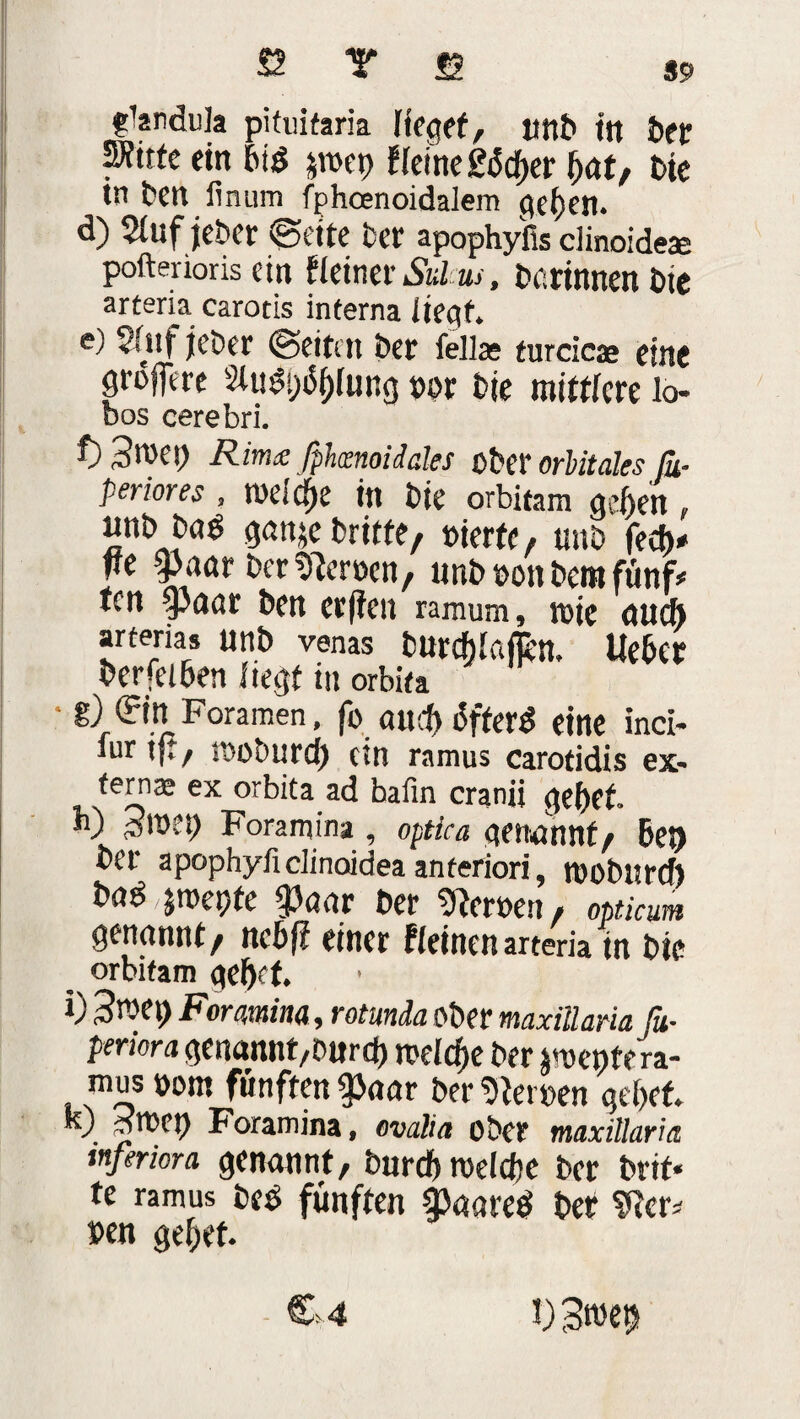 Ω Υ Ω 39
glandula pituitaria lieget, und in der
Mitte ein biß zwey kleine Löcher hat, die
in den sinum sphœnoidalem gehen.
d) Auf jeder Seite der apophysis clinoideæ
posterioris ein kleiner Sulcus, darinnen die
arteria carotis interna liegt.
e) Auf jeder Seiten der sellæ turcicæ eine
grössere Außhöhlung vor die mittlere lo-
bos cerebri.
f) Zwey Rimæ sphœnoidales oder orbitales su-
periores, welche in die orbitam gehen,
und das gantze dritte, vierte, und sech-
ste Paar der Nerven, und von dem fünf-
ten Paar den ersten ramum, wie auch
arterias und venas durchlassen. Ueber
derselben liegt in orbita
g) Ein Foramen, so auch öfters eine inci-
sur ist, wodurch ein ramus carotidis ex-
ternæ ex orbita ad basin cranii gehet.
h) Zwey Foramina, optica genannt, bey
der apophysi clinoidea anteriori, wodurch
das zweyte Paar der Nerven, opticum
genannt, nebst einer kleinen arteria in die
orbitam gehet.
i) Zwey Foramina, rotunda oder maxillaria su-
periora genannt, durch welche der zweyte ra-
mus vom fünften Paar der Nerven gehet.
k) Zwey Foramina, ovalia oder maxillaria
inferiora genannt, durch welche der drit-
te ramus des fünften Paares der Ner-
ven gehet.
C 4 l) Zwey